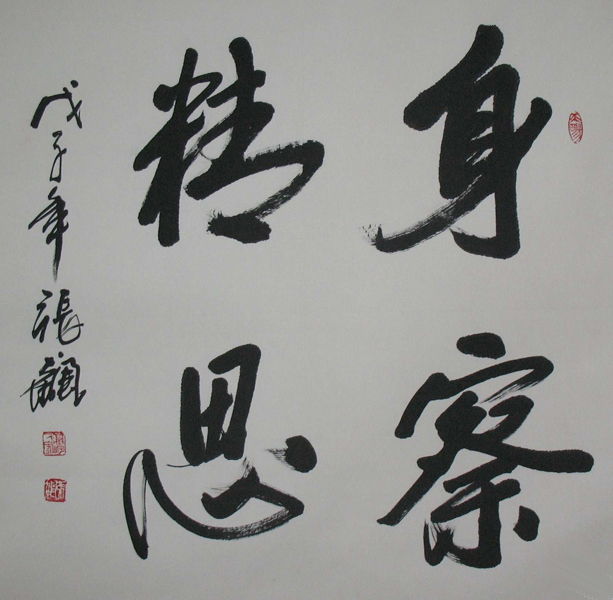 身察
精思
戊子年 張